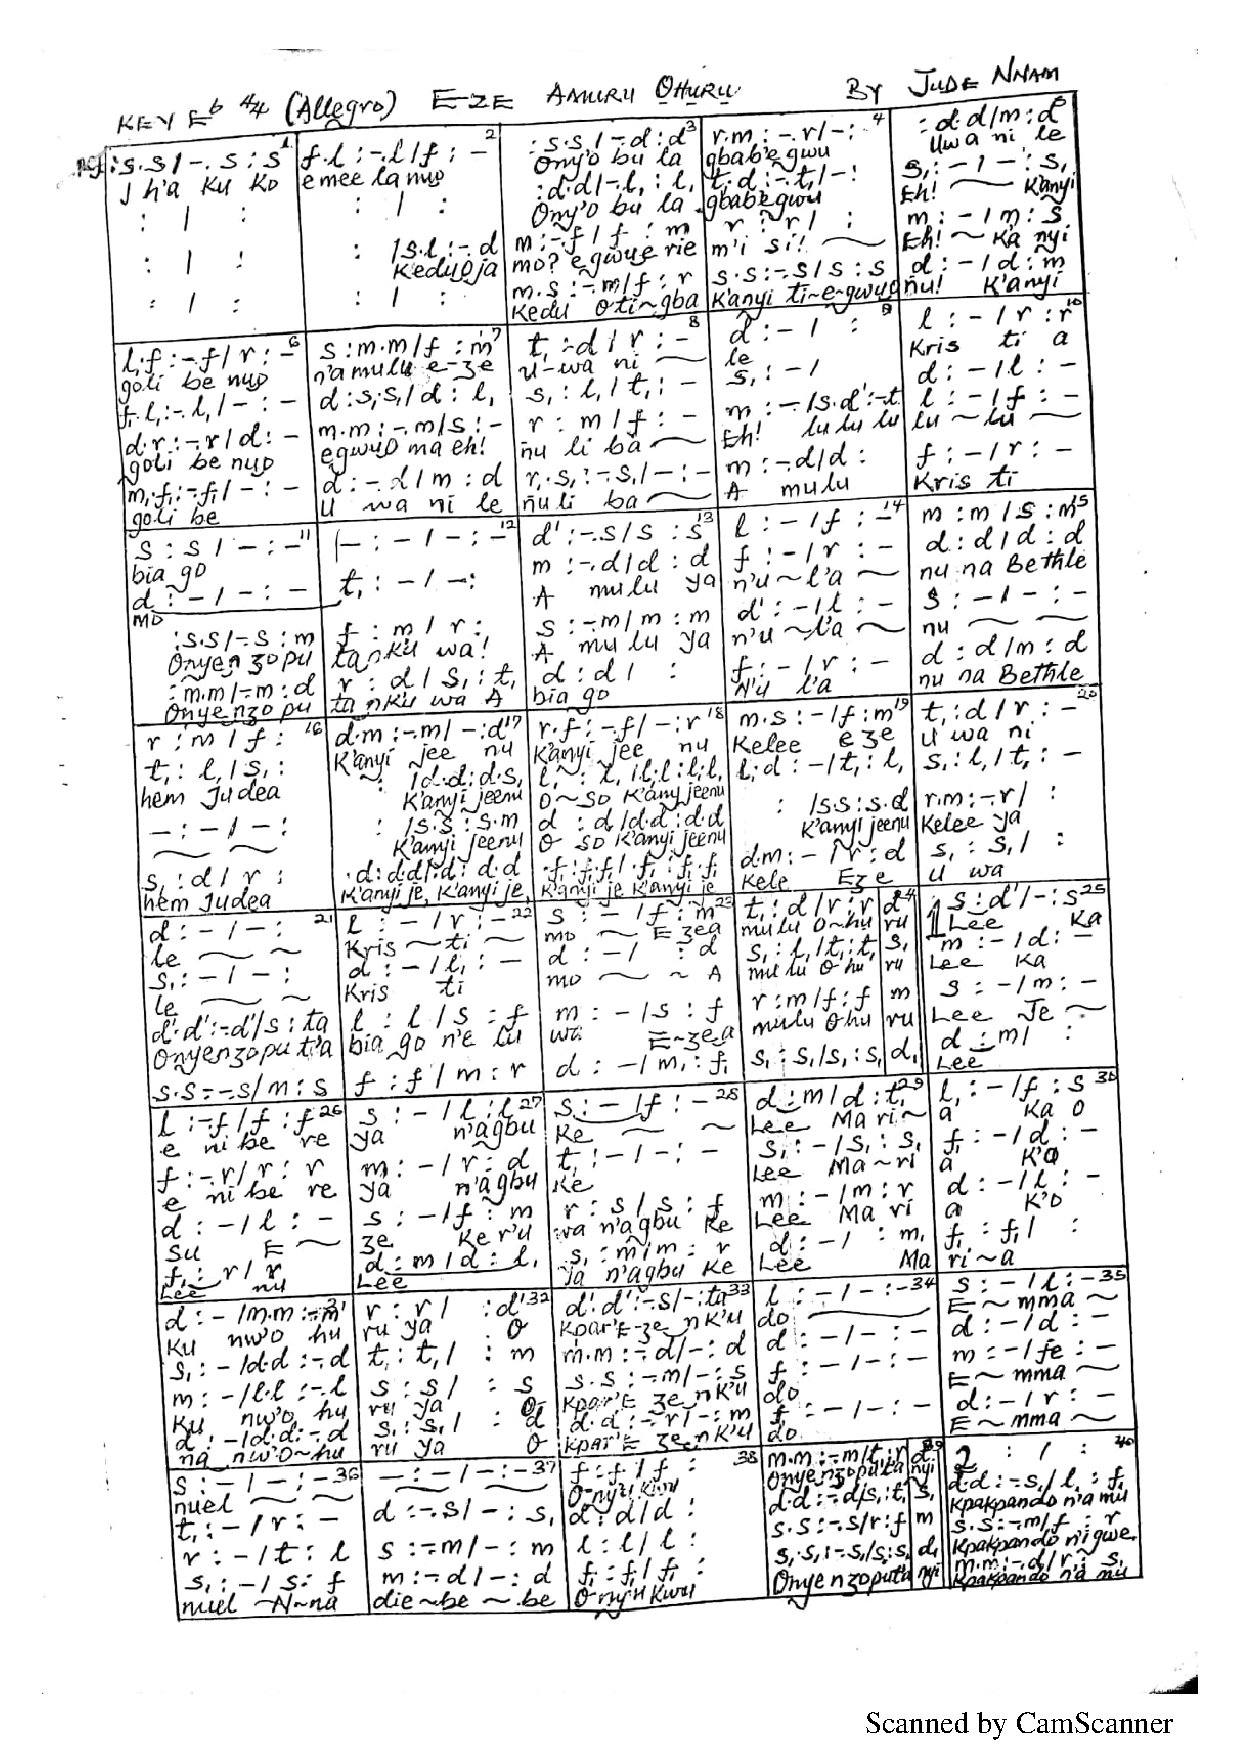 KEY E♭ 4/4 (Allegro) E-ZE AMURU ỌHURU. BY JUDE NNAM
mf :s.s / -. s : s 1
J h'a Ku Ko
: / :
: / :
: / :
f.l :-.l / f : - 2
emee la nụọ
: / :
: /s.l :- d
Keduọja
: / :
:s.s / -.d : d 3
Ony'o bu la
:d.d / -.l, : l,
Ony'o bu la
m :-.f / f : m
mo? egwue rie
m.s :-.m / f : r
Kedu oti~gba
r.m :-.r / - : 4
gbabe gwu
t,.d :-.t, / - :
gbabegwu
r : r / :
m'i si!
s.s :-.s / s : s
K'anyi ti-e-gwuọ
:d.d / m : d 5
Uwa ni le
s, : - / - : s,
Eh! K'anyi
m : - / m : s
Eh! ~ Ka nyi
d : - / d : m
ñu! K'anyi
l,.f :-.f / r : - 6
goli be nụọ
f,.l, :-.l, / - : -
d.r :-.r / d : -
goli be nụọ
m,.f, :-.f, / - : -
goli be
s : m.m / f : m 7
n'a mulu e-ze
d : s,.s, / d : l,
m.m :-.m / s : -
egwuọ ma eh!
d :-.d / m : d
U wa ni le
t, :-d / r : - 8
u-wa ni
s, : l, / t, : -
r : m / f : -
ñu li ba
r.s, :-.s, / - : -
ñu li ba
d : - / : 9
le
s, : - /
m :-./s.d' :-t
Eh! lu lu lu
m :-.d / d :
A mulu
l : - / r : r 10
Kris ti a
d : - / l : -
l : - / f : -
lu ~ lu
f : - / r : -
Kris ti
s : s / - : - 11
bia go
d : - / - : -
mo
:s.s / -.s : m
Onyen zopu
:m.m / -.m : d
Onyenzo pu
/ - : - / - : - 12
t, : - / - :
f : m / r :
tanku wa!
r : d / s, : t,
ta nku wa A
d' :-.s / s : s 13
m :-.d / d : d
A mulu ya
s :-m / m : m
A mu lu ya
d : d / :
bia go
l : - / f : - 14
f : - / r : -
n'u ~ l'a
d' : - / l : -
n'u ~ l'a
f : - / r : -
N'u l'a
m : m / s : m 15
d : d / d : d
nu na Bethle
s : - / - : -
nu
d : d / m : d
nu na Bethle
r : m / f : 16
t, : l, / s, :
hem Judea
- : - / - :
s, : d / r :
hem Judea
d.m :-.m / - : d 17
K'anyi jee nu
: /d.d : d.s,
K'anyi jeenu
: /s.s : s.m
K'anyi jeenu
.d : d.d / .d : d.d
K'anyi je, K'anyi je,
r.f :-.f / - : r 18
K'anyi jee nu
l, : l, / l,.l, : l,.l,
o~so K'any jeenu
d : d / d.d : d.d
O so K'anyi jeenu
.f, : f,.f, / .f, : f,.f,
K'anyi je K'anyi je
m.s : - / f : m 19
Kelee eze
l,.d : - / t, : l,
: /s.s : s.d
K'anyi jeenu
d.m : - / r : d
Kele Eze
t, : d / r : - 20
U wa ni
s, : l, / t, : -
r.m :-.r / :
Kelee ya
s, : s, / :
u wa
d : - / - : 21
le
s, : - / - :
le
d'.d' :-d' / s : ta
Onyenzoputa
s.s :-.s / m : s
l : - / r : - 22
Kris ~ ti
d : - / l, : -
Kris ti
l : l / s : f
bia go n'e lu
f : f / m : r
s : - / f : m 23
mo E zea
d : - / : d
mo ~ A
m : - / s : f
wa E~zea
d : - / m, : f,
t, : d / r : r d 24
mulu o~hu ru
s, : l, / t, : t, s,
mu lu o hu ru
r : m / f : f m
mulu ohu ru
s, : s, / s, : s, d,
1 s : d' / - : s 25
Lee Ka
m : - / d : -
Lee Ka
s : - / m : -
Lee Je
d : m / :
Lee
l :-f / f : f 26
e ni be re
f :-.r / r : r
e ni be re
d : - / l : -
su E
f, : r / r
Lee nu
s : - / l : l 27
ya n'agbu
m : - / r : d
ya n'agbu
s : - / f : m
ze Ke r'u
d : m / d : l,
Lee
s : - / f : - 28
Ke
t, : - / - : -
Ke
r : s / s : f
wa n'agbu Ke
s, : m / m : r
ya n'agbu Ke
d : m / d : t, 29
Lee Ma ri~
s, : - / s, : s,
Lee Ma~ri
m : - / m : r
Lee Ma ri
d : - / : m,
Lee Ma
l, : - / f : s 30
a Ka o
f, : - / d : -
a K'o
d : - / l : -
a K'o
f, : f, / :
ri~a
d : - / m.m :-m 31
Ku nwo hu
s, : - / d.d :-.d
m : - / l.l :-.l
Ku nw'o hu
d : - / d.d :-.d
na nw'o~hu
r : r / : d' 32
ru ya o
t, : t, / : m
s : s / : s
ru ya o
s, : s, / : d
ru ya o
d'.d' :-.s / - : ta 33
Kpar'E-ze nK'u
m.m :-.d / - : d
s.s :-.m / - : s
Kpar'E ze nK'u
d.d :-.r / - : m
Kpar'E ze nK'u
l : - / - : - 34
do
d : - / - : -
f : - / - : -
do
f, : - / - : -
do
s : - / l : - 35
E~mma
d : - / d : -
m : - / fe : -
E~mma
d : - / r : -
E~mma
s : - / - : - 36
nuel
t, : - / r : -
r : - / t : l
s, : - / s : f
nuel ~N~na
- : - / - : - 37
d :-.s / - : s,
s :-m / - : m
m :-.d / - : d
die~be~be
f : f / f : 38
O-nyi'u kwu
d : d / d :
l : l / l :
f, : f, / f, :
O-nyi'u kwu
m.m :-m / t, : r d 39
Onyenzoputa nyi
d.d :-d / s, : t, s,
s.s :-.s / r : f m
s,.s, :-.s, / s, : s, d,
Onye nzoputa nyi
2 : / : 40
d.d :-s, / l, : f,
Kpakpando n'a mu
s.s :-m / f : r
Kpakpando n'i gwe
m.m :-d / r : s,
Kpakpando n'a mu
Scanned by CamScanner